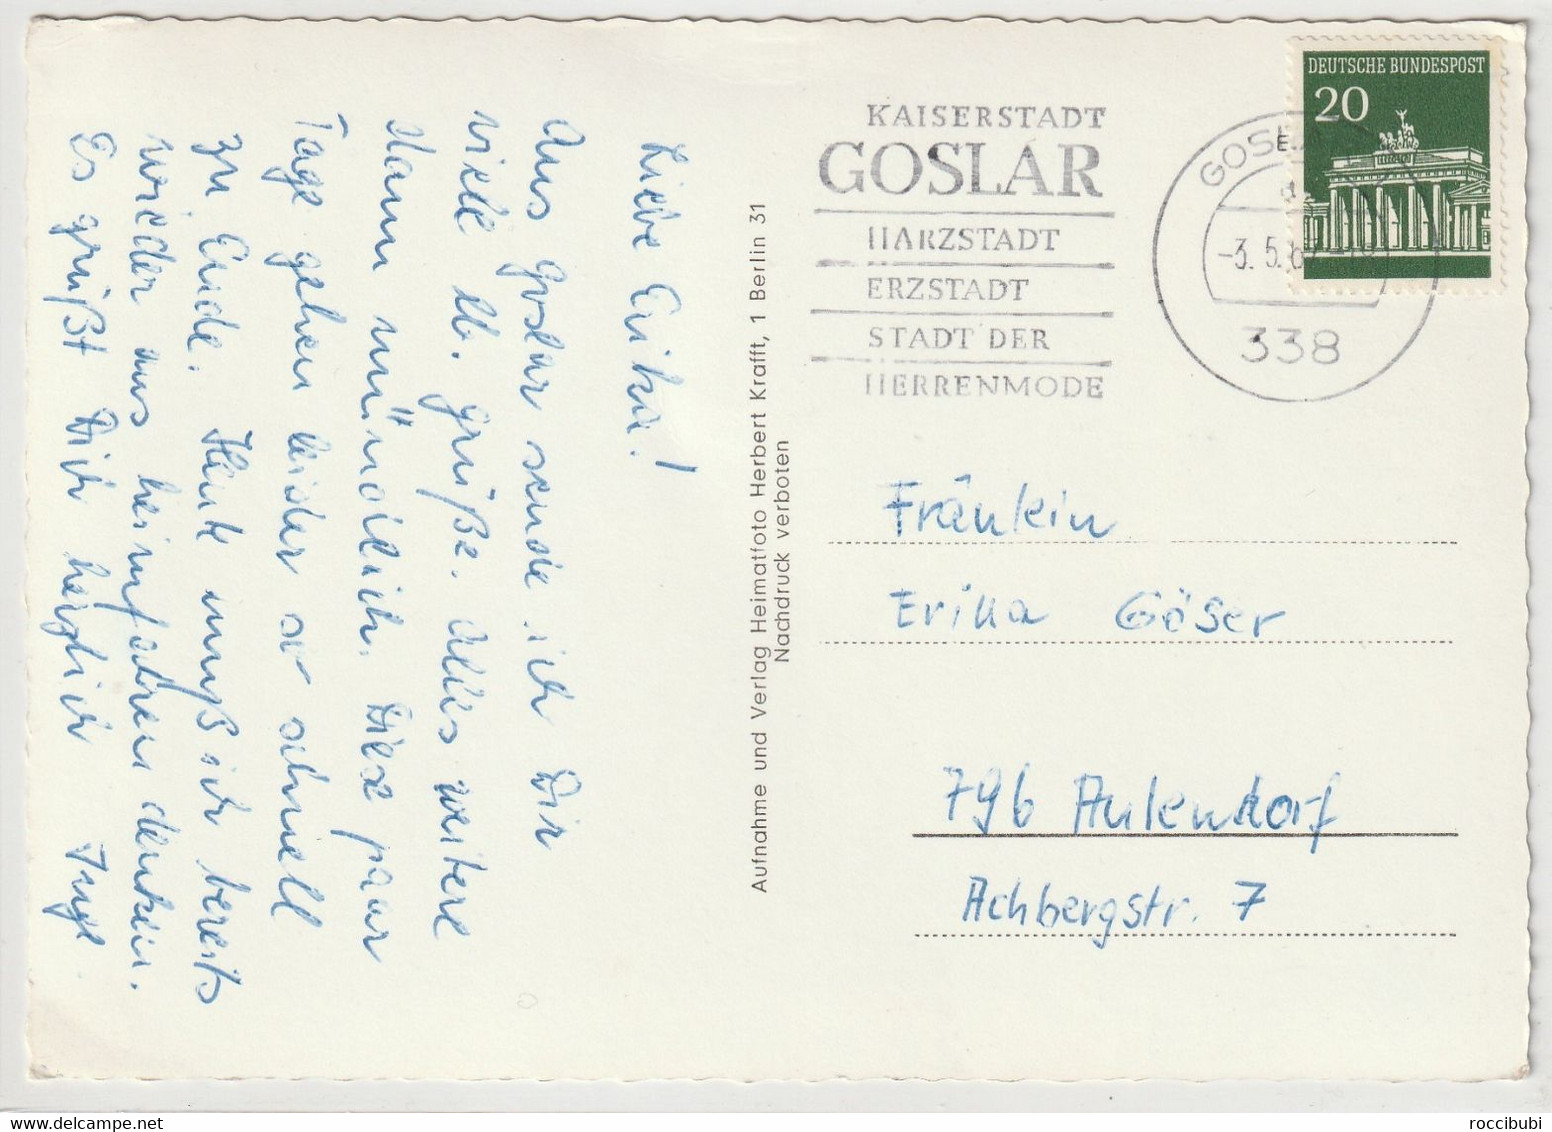 Liebe Erika!
Aus Goslar sende ich Dir
viele lb. Grüße. Alles weitere
dann mündlich. Diese paar
Tage gehen leider so schnell
zu Ende. Heute muß ich bereits
wieder ans heimfahren denken.
Es grüßt Dich herzlich Inge
Aufnahme und Verlag Heimatfoto Herbert Krafft, 1 Berlin 31
Nachdruck verboten
KAISERSTADT
GOSLAR
HARZSTADT
ERZSTADT
STADT DER
HERRENMODE
GOSLAR
-3.5.6
338
DEUTSCHE BUNDESPOST
20
Fräulein
Erika Göser
796 Aulendorf
Achbergstr. 7
roccibubi